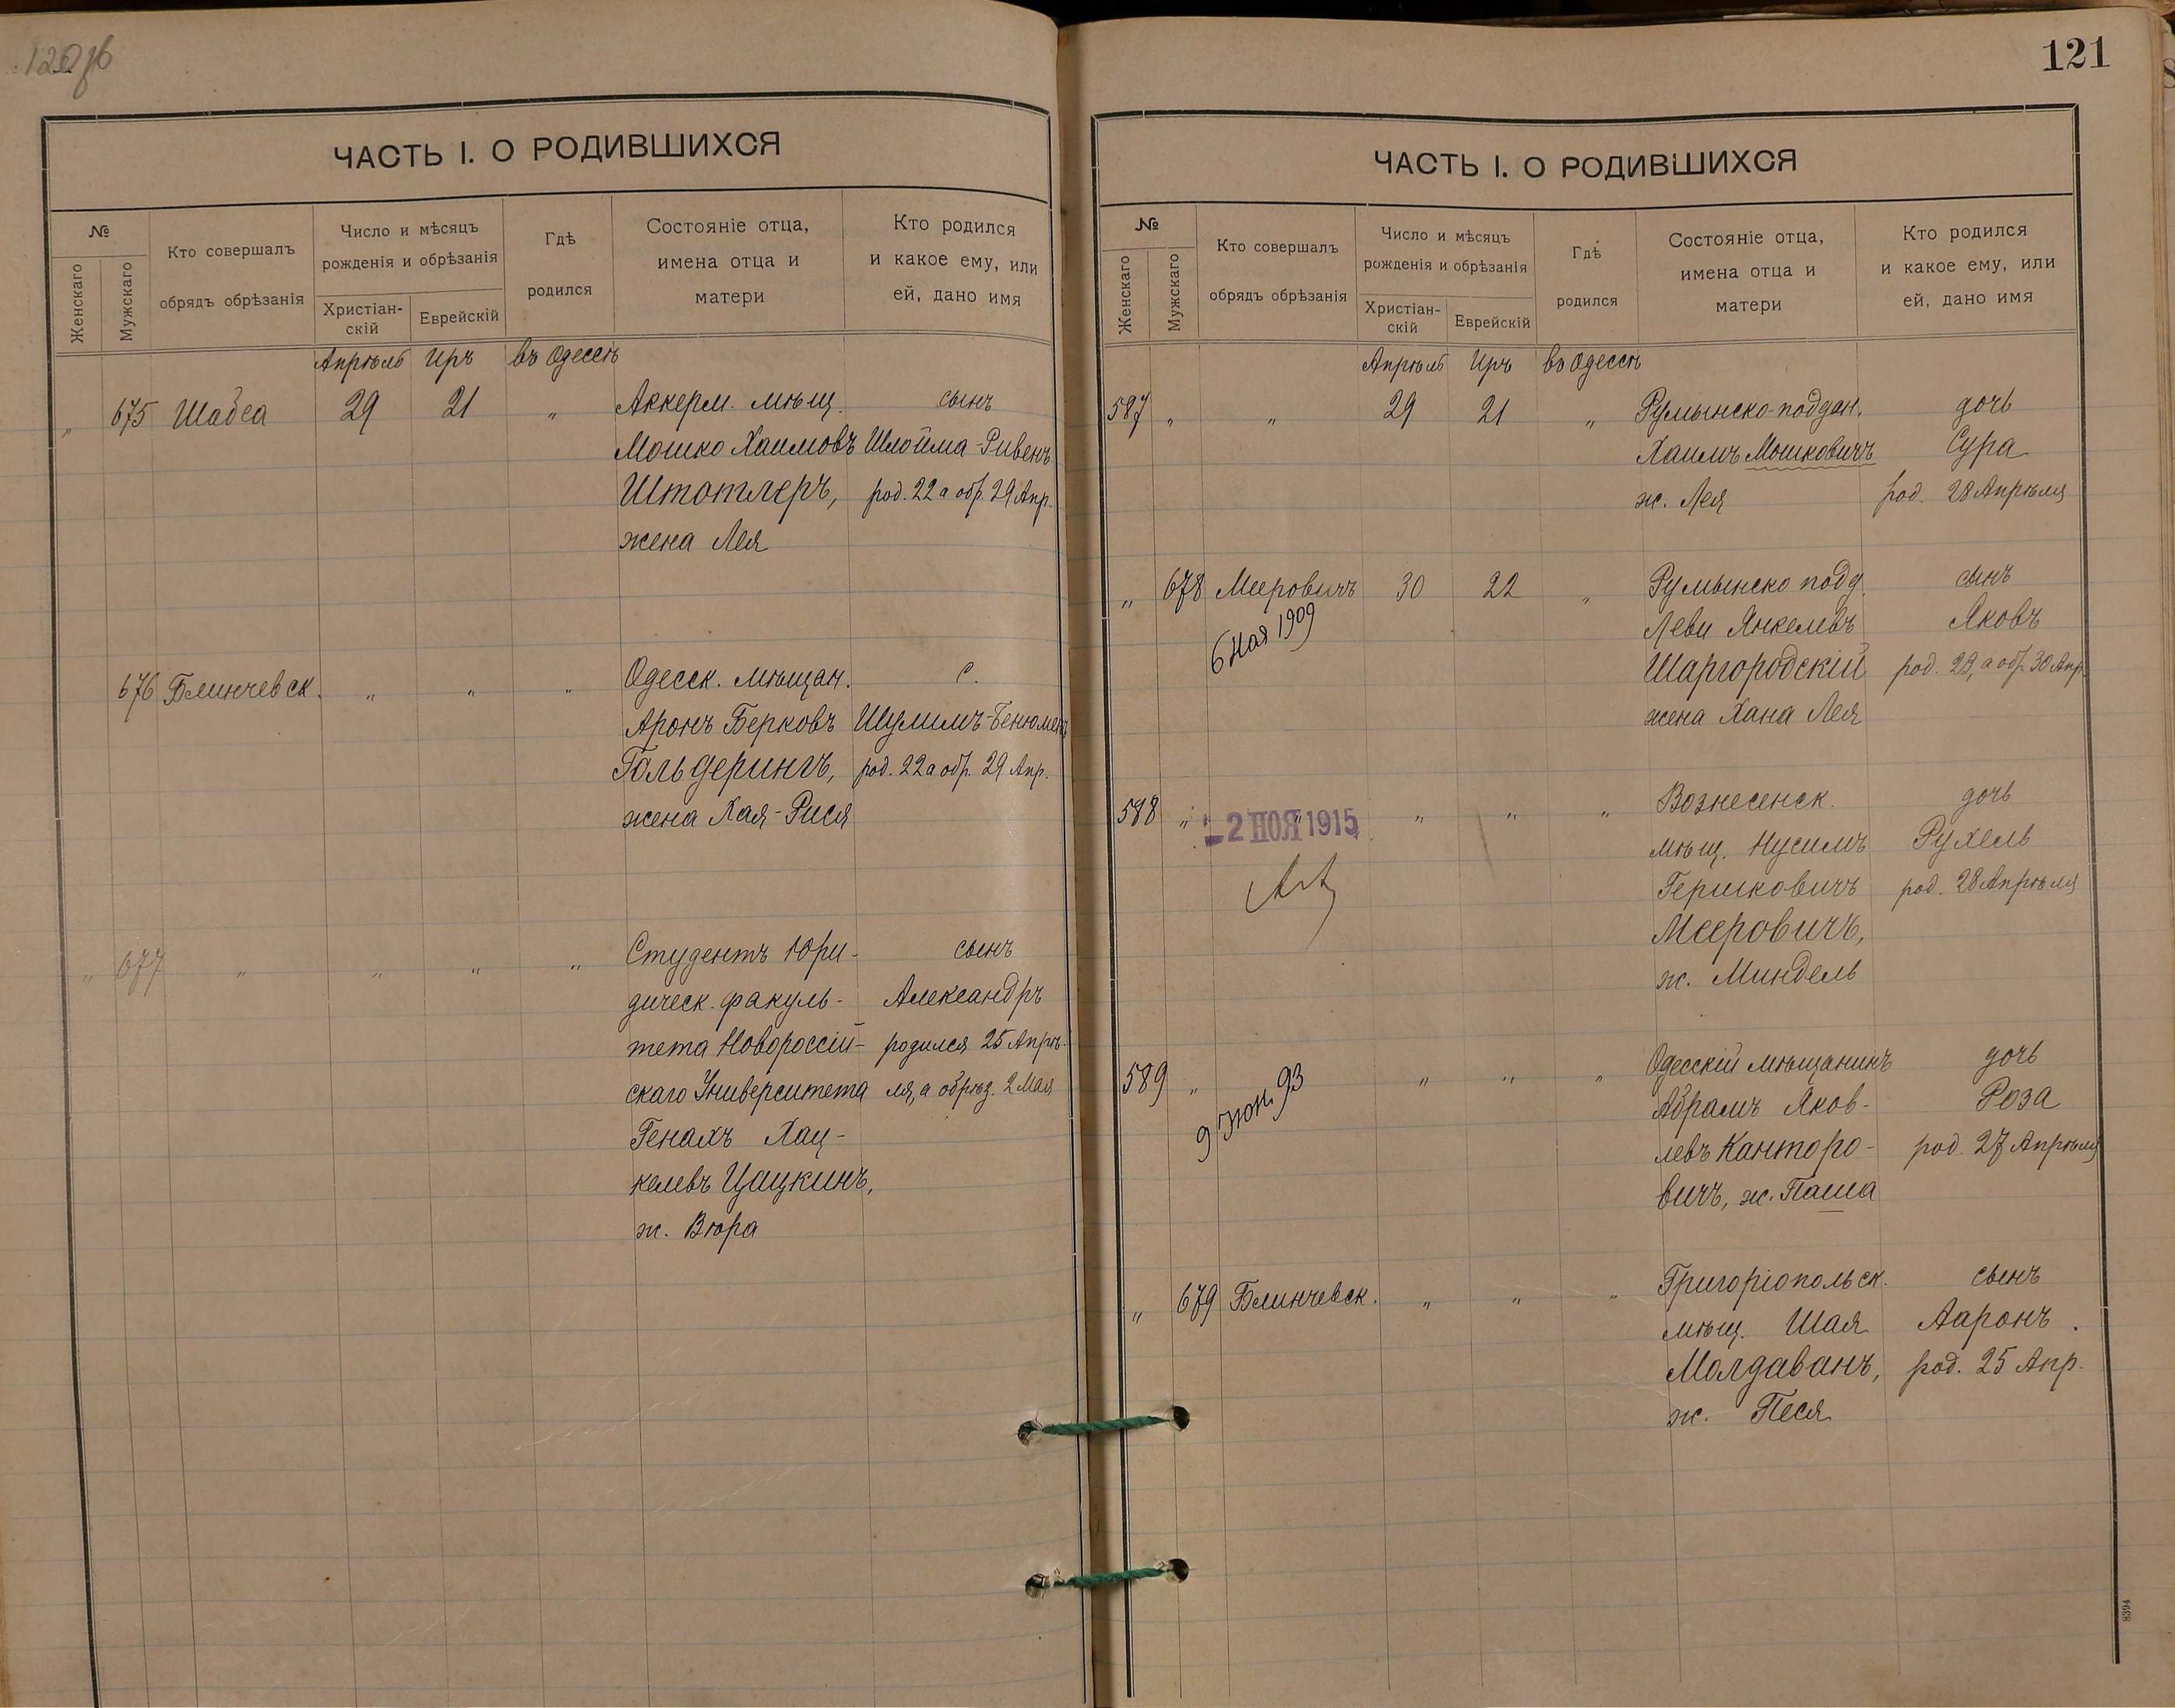 120об
ЧАСТЬ I. О РОДИВШИХСЯ
№
Женскаго
Мужскаго
Кто совершалъ
обрядъ обрѣзанія
Число и мѣсяцъ
рожденія и обрѣзанія
Христіан-
скій
Еврейскій
Гдѣ
родился
Состояніе отца,
имена отца и
матери
Кто родился
и какое ему, или
ей, дано имя
Апрѣль Иръ въ Одессѣ
" 675 Шабса 29 21 " Аккерм. мѣщ. сынъ
Мошко Хаимовъ Шлойма-Ривенъ
Штотлеръ, род. 22 а обр. 29 Апр.
жена Лея
676 Блинчевск. " " " Одесск. мѣщан. с.
Аронъ Берковъ Шулимъ-Бенюмен
Гольдерингъ, род. 22 а обр. 29 Апр.
жена Хая-Рися
" 677 " " " " Студентъ Юри- сынъ
дическ. факуль- Александръ
тета Новороссій- родился 25 Апрѣ-
скаго Университета ля, а обрѣз. 2 Мая
Генахъ Хац-
келевъ Цацкинъ,
ж. Вѣра
121
ЧАСТЬ I. О РОДИВШИХСЯ
№
Женскаго
Мужскаго
Кто совершалъ
обрядъ обрѣзанія
Число и мѣсяцъ
рожденія и обрѣзанія
Христіан-
скій
Еврейскій
Гдѣ
родился
Состояніе отца,
имена отца и
матери
Кто родился
и какое ему, или
ей, дано имя
Апрѣль Иръ въ Одессѣ
587 " " 29 21 " Румынско-поддан. дочь
Хаимъ Мошковичъ Сура
ж. Лея род. 28 Апрѣля
" 678 Мееровичъ 30 22 " Румынско подд. сынъ
6 Ная 1909
Леви Янкелевъ Яковъ
Шаргородскій род. 23, а обр. 30 Апр.
жена Хана Лея
588 " " " " " " Вознесенск. дочь
-2 НОЯ 1915
мѣщ. Нусимъ Рухель
Гершковичъ род. 28 Апрѣля
Мееровичъ,
ж. Миндель
589 " " " " Одесскій мѣщанинъ дочь
9 Іюн. 93
Абрамъ Яков- Роза
левъ Канторо- род. 27 Апрѣля
вичъ, ж. Паша
" 679 Блинчевск. " " " Григоріопольск. сынъ
мѣщ. Шая Ааронъ.
Молдаванъ, род. 25 Апр.
ж. Песя
8394